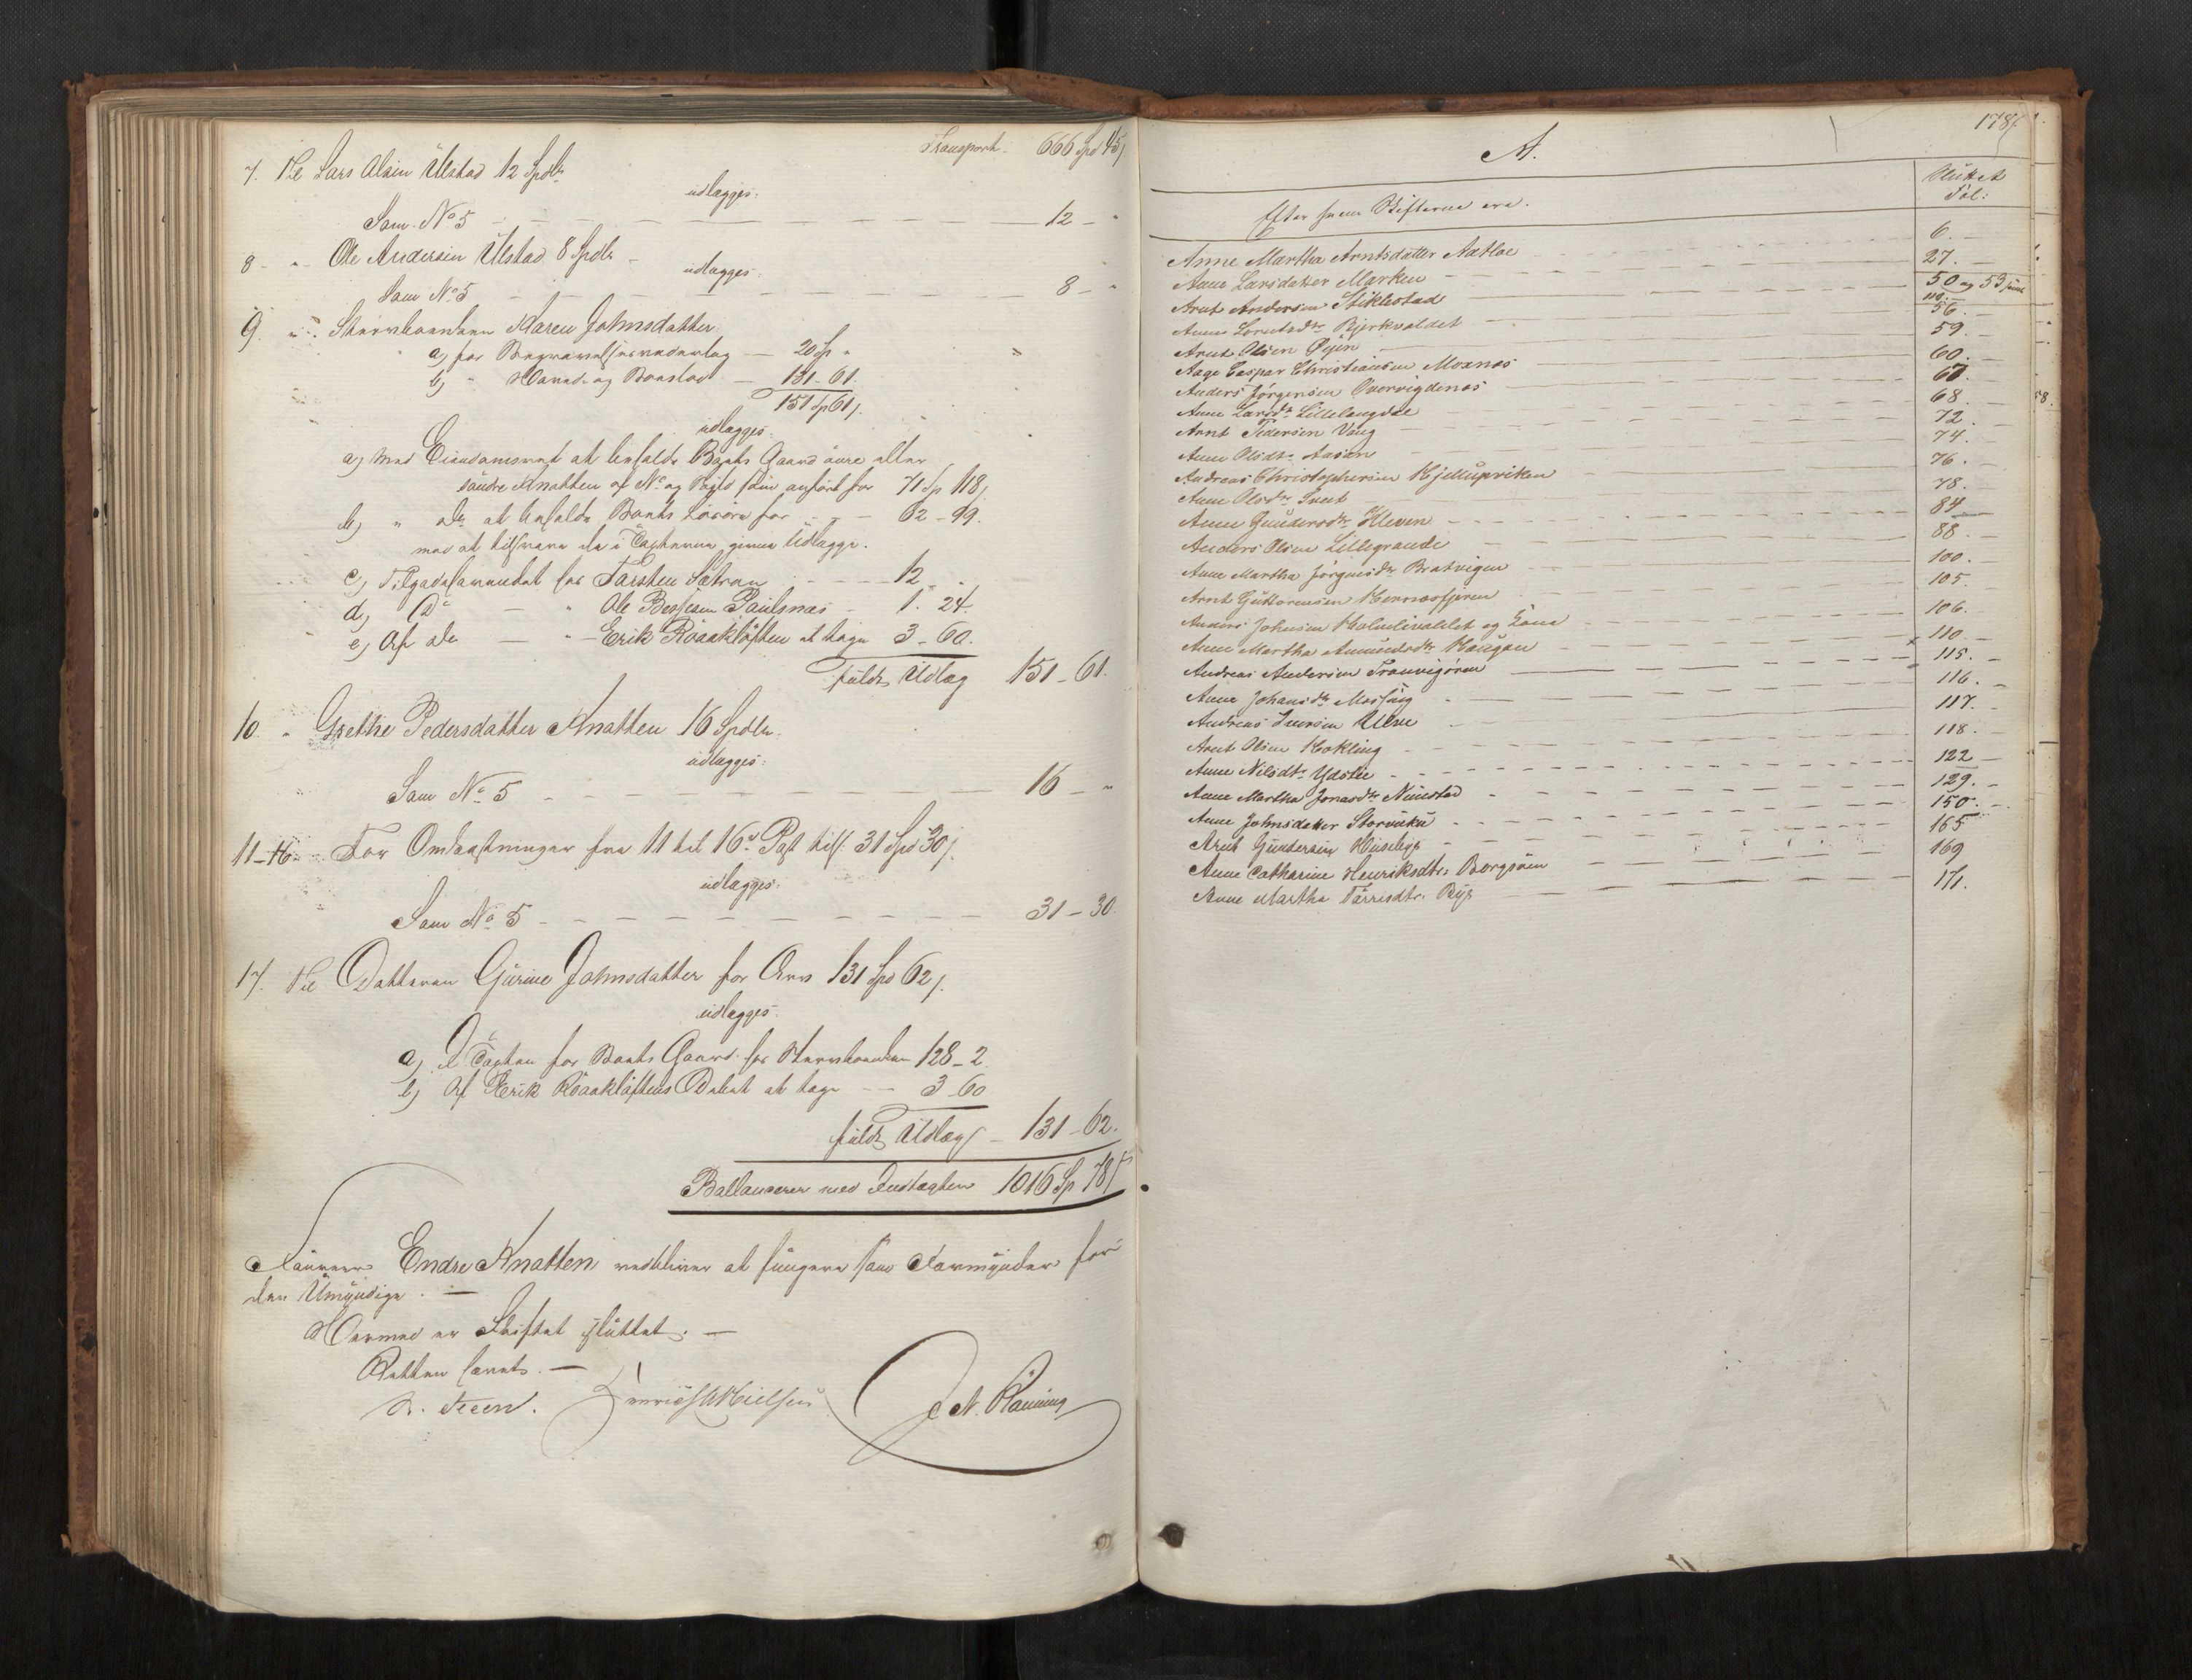 Transport. 666 Spd 45 s.
7. Til Lars Olsen Ulstad 12 Spdlr
udlægges:
Som No 5 12 - "
8 - " Ole Andersen Ulstad 8 Spdlr
udlægges:
Som No 5 8 - "
9. " Stervboenken Karen Johnsdatter
a) for Begravelsesvederlag 20 Sp "
b) " Hoved og Boeslod 131 - 61.
151 Sp 61 s.
udlægges
a) med Eiendomsret at befalde Boets Gaard øvre eller
søndre Knatten af No og Skyld som anført for 71 Sp 118 s.
b) " do at befalde Boets Løsøre for 62 - 99.
med at tilsvare de i givne Udlægge.
c) Tilgodehavendet hos Torsten Sætran 12 "
d) Do " Ole Bertsen Paulsnæs 1. 24.
e) Af do " Erik Roaakløften at tage 3 - 60.
fuldt Udlæg 151 - 61.
10. " Grethe Pedersdatter Knatten 16 Spdlr.
udlægges:
Som No 5 16 - "
11-16 For Omkostninger fra 11 til 16 Post tils. 31 Spd 30 s.
udlægges:
Som No 5 31 - 30
17. Til Datteren Gurine Johnsdatter for Arv 131 Spd 62 s.
udlægges.
a) for Boets Gaard hos Stervboenken 128 - 2
b) Af Erik Roaakløftens Debet at tage 3 - 60
fuldt Udlæg 131 - 62.
Ballancerer med Indtægten 1016 Sp 78 s
Endre Knatten vedbliver at fungere som Formynder for
den Umyndige. -
Hermed er Skiftet sluttet. -
Retten hævet. -
178.
A.
Efter hvem Skifterne ere.
Protocol Fol:
Anne Martha Arntsdatter Aatloe 6.
Anne Larsdatter Marken 27.
Arnt Andersen Stiklestad 50 og 53
110.
Anne Lorentsdtr Bjerkvoldet 56.
Arnt Olsen Øyen 59.
Aage Caspar Christiansen Moxnæs 60.
Anders Jørgensen Overvigdenæs 67.
Anne Larsdtr Lillelangdal 68.
Arnt Pedersen Vang 72.
Anne Olsdtr Aasan 74.
Andreas Christophersen Hjellupviken 76.
Anne Olsdtr Tuset 78.
Anne Gundersdtr Kleven 84.
Anders Olsen Lillegrande 88.
Anne Martha Jørgensdtr Bratvigen 100.
Arnt Guttormsen Hernæsfjæren 105.
Anders Johnsen Holmlivaldet og Kone 106.
Anne Martha Amundsdtr Haugan 110.
Andreas Andersen Tranvigøren 115.
Anne Johansdtr Mossing 116.
Andreas Iversen Ulve 117.
Arnt Olsen Kokling 118.
Anne Nilsdtr Ydstie 122
Anne Martha Jonasdtr Nimstad 129.
Anne Johnsdatter Storvuku 150.
Arnt Gundersen Huseby 165
Anne Catharine Henriksdtr. Borgsøen 169
Anne Martha Torrisdtr. Bye 171.